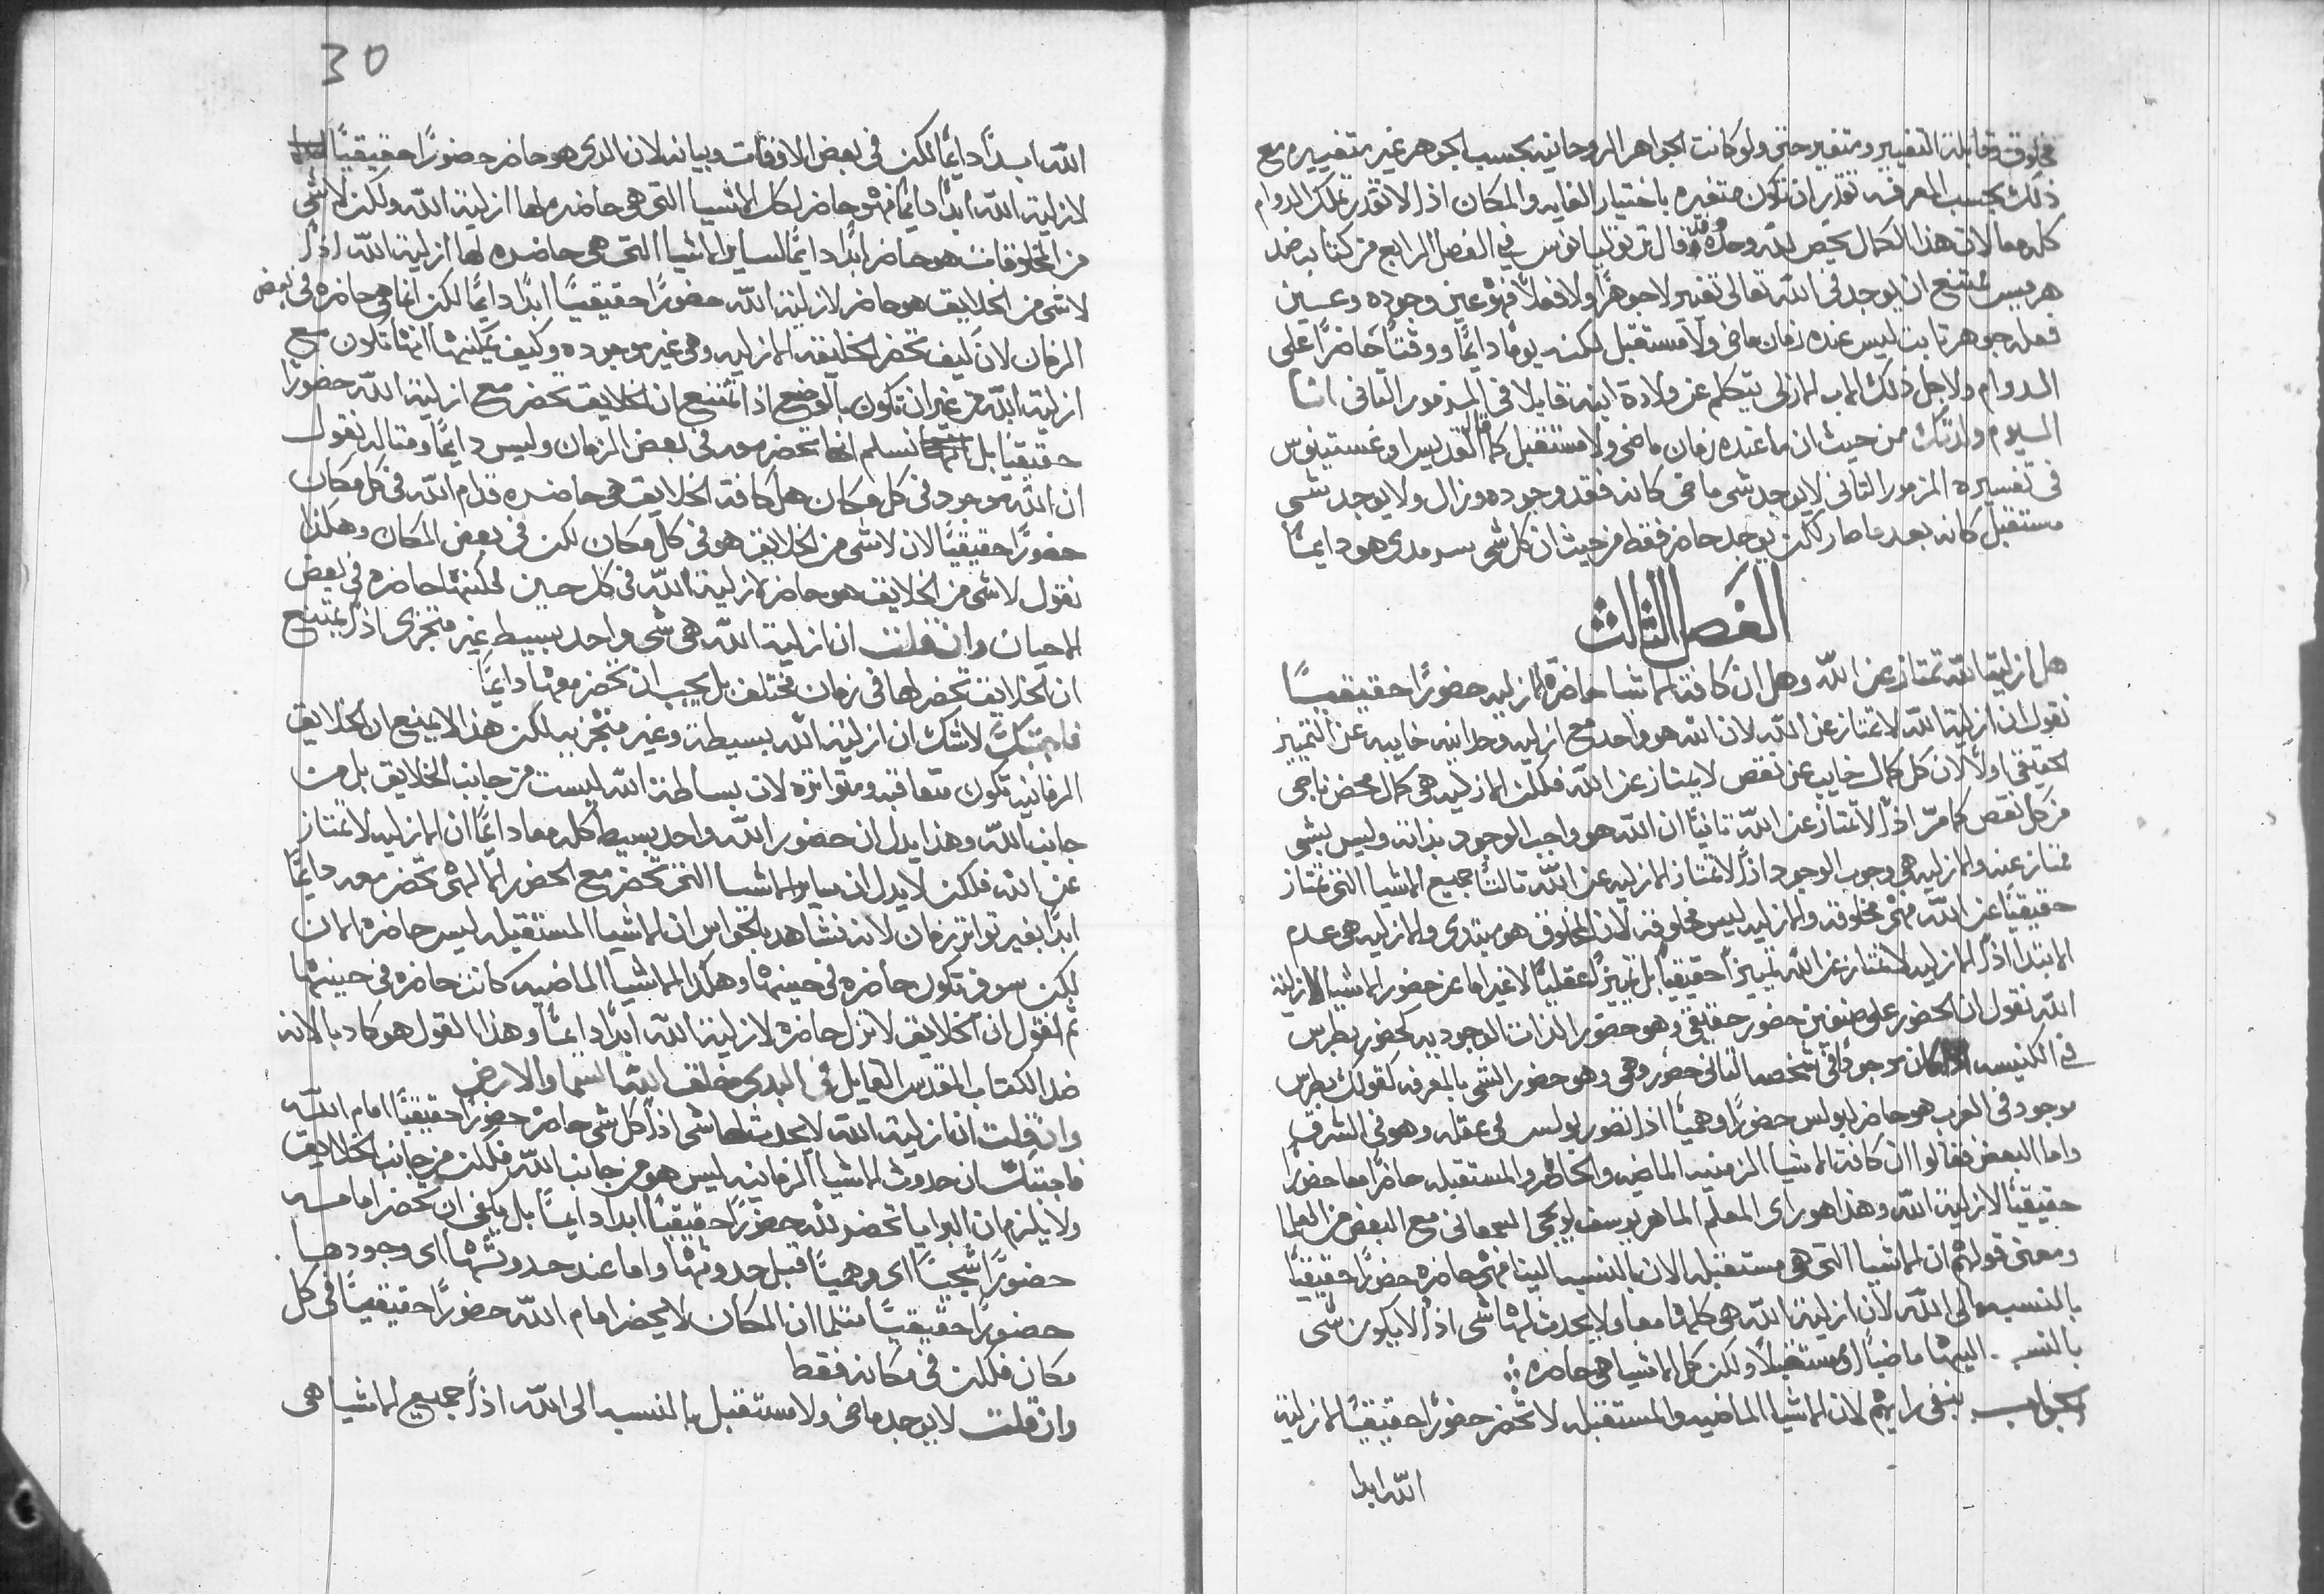 مخلوق قابلة التغيير ومتغير حتى ولو كانت الجواهر الروحانيه بحسب الجوهر غير متغييره مع
ذلك بحسب المعرفه تقدر ان تكون متغيره باختيار الغايه والمكان اذ الا تقدر تملك الدوام
كله معا لان هذا الكمال يخص لله وحده قال ترتوليانوس في الفصل الرابع من كتابه ضد
هرميس يمتنع ان يوجد في الله تعالى تغيير لا جوهرًا ولا فعلاً فهو عين وجوده وعين
فعله جوهر ثابت ليس عنده زمان ماضي ولا مستقبل لكنه يومًا دايمًا ووقتًا حاضرًا على
الدوام ولاجل ذلك الاب الازلي يتكلم عن ولادة ابنه قايلا في المزمور الثاني انا
اليوم ولدتك من حيث ان ما عنده زمان ماضي ولا مستقبل كما قال القديس اوغستينوس
في تفسيره المزمور الثاني لا يوجد شي ماضي كانه فقد وجوده وزال ولا يوجد شي
مستقبل كانه بعد ما صار لكن يوجد حاضر فقط من حيث ان كل شي سرمدي هو دايمًا
الفصل الثالث
هل ازلية الله تمتاز عن الله وهل ان كافة الاشيا حاضرة للازليه حضورًا حقيقيًا
نقول ان ازلية الله لا تمتاز عن الله لان الله هو واحد مع ازليه وحدانيه خايبه عن التمييز
الحقيقي اولًا لان كل كمال خايب عن نقص لا يمتاز عن الله فلكن الازليه هي كمال محض ناجي
من كل نقص كما مرّ اذًا لا تمتاز عن الله ثانيًا ان الله هو واجب الوجود بذاته وليس بشي
ممتاز عنه والازليه هي وجوب الوجود اذًا لا تمتاز الازليه عن الله ثالثًا جميع الاشيا التي تمتاز
حقيقيًا عن الله فهي مخلوقه والازليه ليس مخلوقه لان المخلوق هو مبتدي والازليه هي عدم
الابتدا اذًا الازليه لا تمتاز عن الله تمييزًا حقيقيًا بل تمييزًا عقليًا لا غير اما عن حضور الاشيا لازلية
الله نقول ان الحضور على صنفين حضور حقيقي وهو حضور الذات الوجوديه كحضور بطرس
في الكنيسه اذا كان موجودًا في شخصه الثاني حضور وهمي وهو حضور الشي بالمعرفه كقولك بطرس
موجود في الغرب هو حاضر لبولس حضورًا وهميًا اذا تصور بولس في عقله وهو في الشرق
واما البعض فقالوا ان كافة الاشيا الزمنيه الماضيه والحاضره والمستقبله حاضرًا معا حضورًا
حقيقيًا لازلية الله وهذا هو راى المعلم الماهر يوسف السمعاني مع البعض من العلما
ومعنى قولهم ان الاشيا التي هي مستقبله الان بالنسبه الينا فهي حاضره حضورًا حقيقيًا
بالنسبه الى الله لان ازلية الله هي كلها معا ولا يحدث لها شي اذًا لا يكون شي
بالنسبه اليها ماضيًا او مستقبلاً ولكن كل الاشيا هي حاضره
الجواب ننفي رايهم لان الاشيا الماضيه والمستقبله لا تحضر حضورًا حقيقيًا لازلية
الله ابدا
30
الله ابدًا دايمًا لكن في بعض الاوقات وبيانه لان الذي هو حاضر حضورًا حقيقيًا
لازلية الله ابدًا دايمًا فهو حاضر لكل الاشيا التي هي حاضره لها ازلية الله ولكن لا شي
من المخلوقات هو حاضر ابدًا دايمًا لساير الاشيا التي هي حاضره لها ازلية الله اذًا
لا شي من الخلايق هو حاضر لازلية الله حضورًا حقيقيًا ابدًا دايمًا لكن انما هي حاضره في بعض
الزمان لان كيف تحضر الخليقه الازليه وهي غير موجوده وكيف يمكنها انها تكون مع
ازلية الله من غير ان تكون بالوضع اذًا يمتنع ان الخلايق تحضر مع ازلية الله حضورًا
حقيقيًا بل نسلم انها تحضر معه في بعض الزمان وليس دايمًا ومثاله نقول
ان الله موجود في كل مكان هل كافة الخلايق هي حاضره قدام الله في كل مكان
حضورًا حقيقيًا لان لا شي من الخلايق هو في كل مكان لكن في بعض المكان وهكذا
نقول لا شي من الخلايق هو حاضر لازلية الله في كل حين لكنها حاضره في بعض
الاحيان وان قلت ان ازلية الله هي شي واحد بسيط غير متجزي اذًا يمتنع
ان الخلايق تحضر لها في زمان مختلف بل يجب ان تحضر معها دايمًا
فاجبتك لا شك ان ازلية الله بسيطه وغير متجزيه لكن هذا لا يمنع ان الخلايق
الزمانيه تكون متعاقبه ومتواتره لان بساطة الله ليست من جانب الخلايق بل من
جانب الله وهذا يدل ان حضور الله واحد بسيط كله معا دايمًا ان الازليه لا تمتاز
عن الله فلكن لا يدل ان ساير الاشيا التي تحضر مع الحضور الالهي تحضر معه دايمًا
ابدًا بغير تواتر زمان لانه نشاهد بالحواس ان الاشيا المستقبله ليس حاضره الان
لكن سوف تكون حاضره في حينها وهكذا الاشيا الماضيه كانت حاضره في حينها
ثم نقول ان الخلايق لا تزل حاضره لازلية الله ابدًا دايمًا وهذا القول هو كاذبا لانه
ضد الكتاب المقدس القايل في البدي خلق الله السما والارض
وان قلت ان ازلية الله لا يحدث لها شي اذًا كل شي حاضر حضورًا حقيقيًا امام الله
فاجبتك ان حدوث الاشيا الزمانيه ليس هو من جانب الله فلكن من جانب الخلايق
ولا يلزم ان البرايا تحضر لله حضورًا حقيقيًا ابدا دايمًا بل يكفي ان تحضر امامه
حضورًا شبحيًا اى وهميًا قبل حدوثها واما عند حدوثها اى وجودها
حضورًا حقيقيًا مثلما ان المكان لا يحضر امام الله حضورًا حقيقيًا في كل
مكان فلكن في مكانه فقط
وان قلت لا يوجد ماضي ولا مستقبل بالنسبه الى الله اذًا جميع الاشيا هي